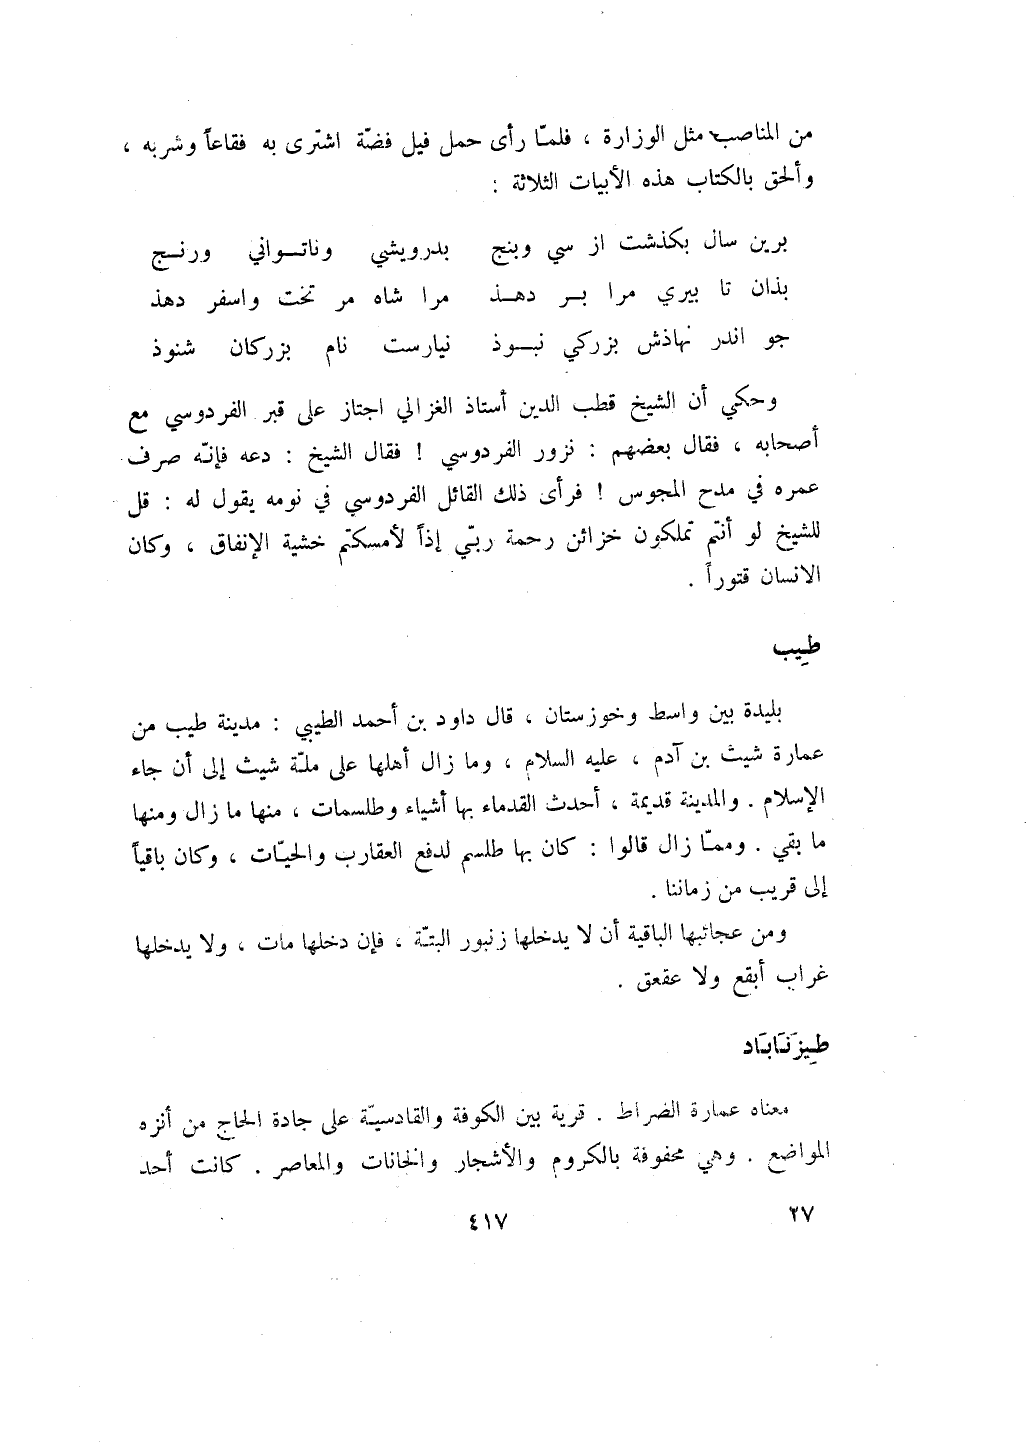 من المناصب مثل الوزارة ، فلمّا رأى حمل فيل فضّة اشترى به فقاعاً وشربه ،
وألحق بالكتاب هذه الأبيات الثلاثة :
برين سال بكذشت از سي وبنج بدرويشي وناتـواني ورنـج
بذان تا بيري مرا بـر دهـذ مرا شاه مر تخت واسفر دهذ
جو اندر نهاذش بزركي نبـوذ نيارست نام بزركان شنوذ
وحكي أن الشيخ قطب الدين أستاذ الغزالي اجتاز على قبر الفردوسي مع
أصحابه ، فقال بعضهم : نزور الفردوسي ! فقال الشيخ : دعه فإنّه صرف
عمره في مدح المجوس ! فرأى ذلك القائل الفردوسي في نومه يقول له : قل
للشيخ لو أنتم تملكون خزائن رحمة ربّي إذاً لأمسكتم خشية الإنفاق ، وكان
الانسان قتوراً .
طِيب
بليدة بين واسط وخوزستان ، قال داود بن أحمد الطيبي : مدينة طيب من
عمارة شيث بن آدم ، عليه السلام ، وما زال أهلها على ملّة شيث إلى أن جاء
الإسلام . والمدينة قديمة ، أحدث القدماء بها أشياء وطلسمات ، منها ما زال ومنها
ما بقي . وممّا زال قالوا : كان بها طلسم لدفع العقارب والحيّات ، وكان باقياً
إلى قريب من زماننا .
ومن عجائبها الباقية أن لا يدخلها زنبور البتّة ، فإن دخلها مات ، ولا يدخلها
غراب أبقع ولا عقعق .
طِيزَنَابَاد
معناه عمارة الضراط . قرية بين الكوفة والقادسيّة على جادة الحاج من أنزه
المواضع . وهي محفوفة بالكروم والأشجار والخانات والمعاصر . كانت أحد
٢٧ ٤١٧